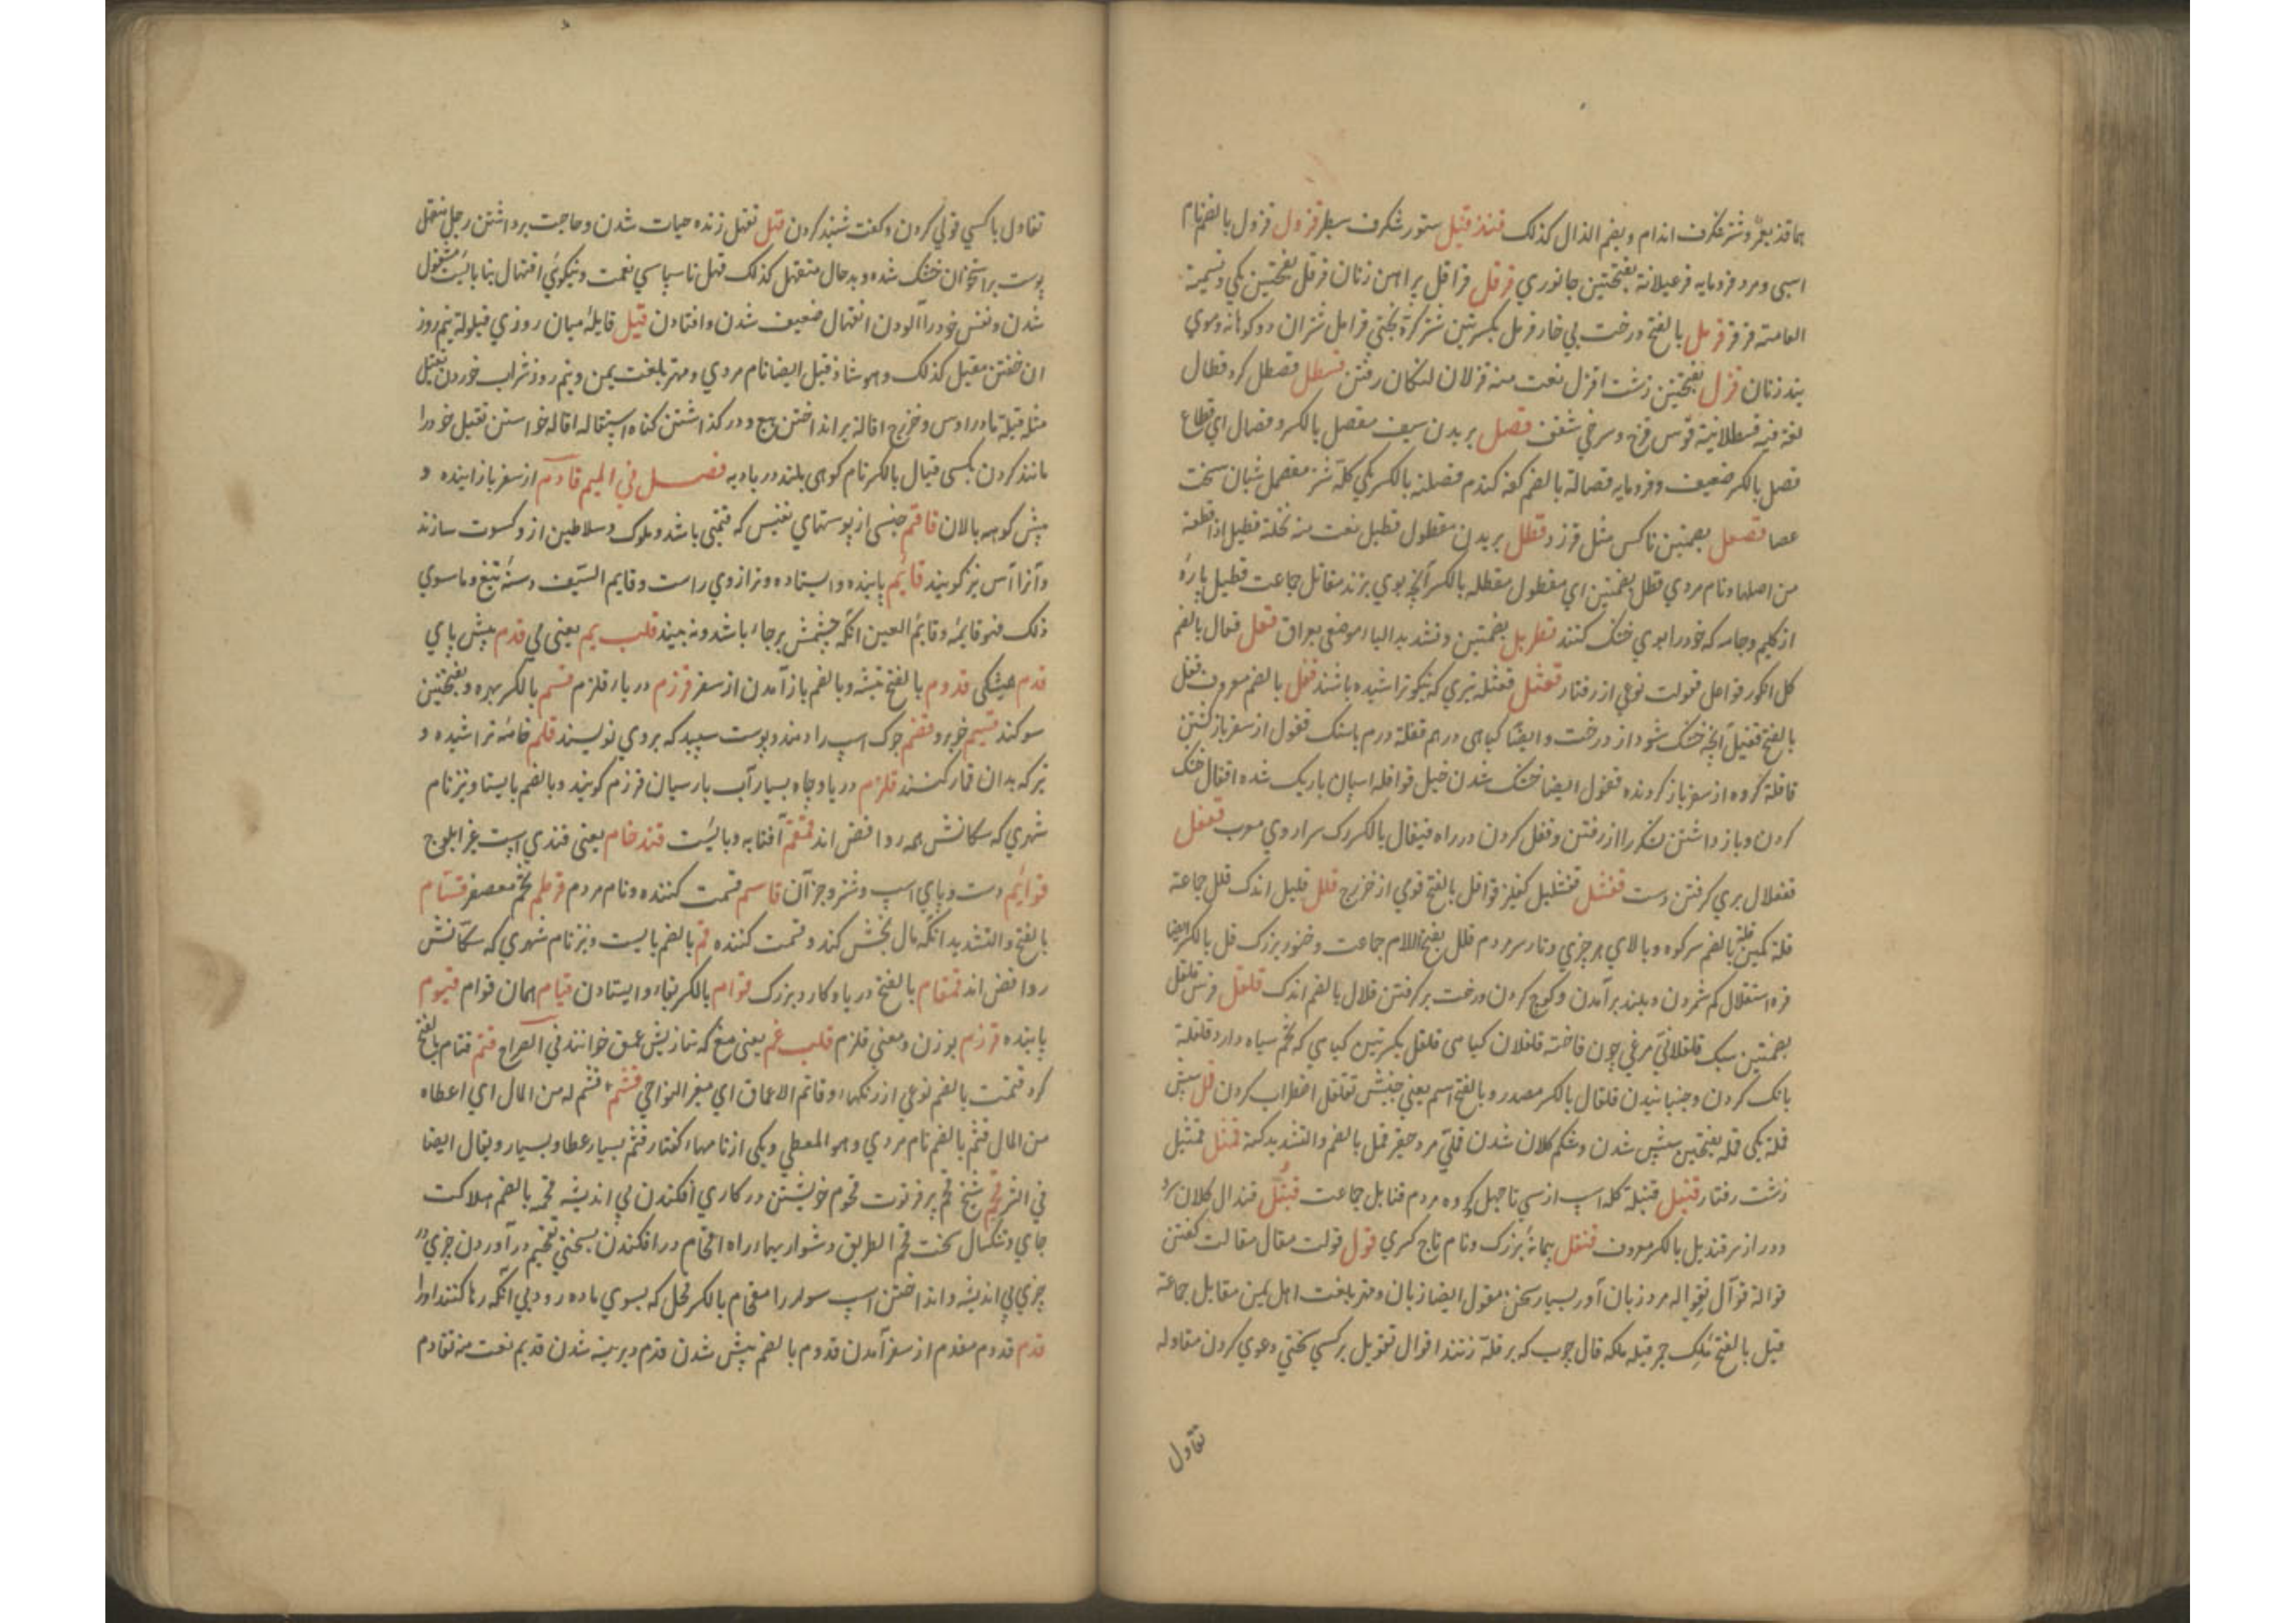 اسپی و مرد فرومایه قرعبلانة بفتحتین جانوری قرقل قراقل پیراهن زنان قرقل بفتحتین یکی و تسمیة
العامة قرقر قرمل بالفتح درخت بی خار قرمل بکسرتین شتر کرة بختی قرامل شتران دو کوهانه و موی
بند زنان قزل بفتحتین زشت اقزل نعت منه قزلان لنکان رفتن قسطل قصطل کرد قطال
لغة فیه قسطلانیة قوس قزح و سرخی شفق قصل بریدن سیف مقصل بالکسر و قصال ای قطاع
قصل بالکسر ضعیف و فرومایه قصالة بالضم کفه کندم قصلة بالکسر یکی کلۀ شتر مقصمل شبان سخت
عصا قصعل بضمتین ناکس مثل قرزد قطل بریدن مقطول قطیل نعت منه نخلة قطیل اذا قطعة
من اصلها و نام مردی قطل بضمتین ای مقطول مقطله بالکسر آنچه بوی برند مقاتل جماعت قطیل پارۀ
از کلیم و جامه که خود را بوی خشک کنند قطربل بضمتین و تشدید الباء موضعی بعراق قعل قعال بالضم
کل انکور قواعل قعولت نوعی از رفتار قعثل قعثله تیری که نیکو تراشیده باشند قفل بالضم معروف قفل
بالفتح قفیل آنچه خشک شود از درخت و ایضا کیاهی درهم قفلة درم باسنک قفول از سفر باز کشتن
قافلة کروه از سفر باز کردنده قفول ایضا خشک شدن خیل قوافل اسپان باریک شده اقفال خشک
کردن و باز داشتن لشکر را از رفتن و قفل کردن در راه قیفال بالکسر رک سراروی معرب قفعل
قفعلال بری کرفتن دست قفشل قفشلیل کفلیز قواقل بالفتح قومی از خزرج قلل قلیل اندک قلل جماعة
قلة کمین قلة بالضم سر کوه و بالای هر چیزی و تارسر مردم قلل بفتح اللام جماعت و خنور بزرک قل بالکسر ایضا
قره استقلال کم شمردن و بلند برآمدن و کوچ کردن و رخت برکرفتن قلال بالضم اندک قلقل فرس قلقل
بضمتین سبک قلقلانی مرغی چون فاخته قلقلان کیاهی قلقل بکسرتین کیاهی که تخم سیاه دارد قلقلة
بانک کردن و جنبانیدن قلقال بالکسر مصدر و بالفتح اسم یعنی جنبش تقلقل اضطراب کردن قمل سپش
قملة یکی قمله بفتحتین سپش شدن و شکم کلان شدن قملی مرد حقیر قمل بالضم والتشدید کنه قمثل قمثیل
زشت رفتار قنبل قنبلة کله اسپ از سی تا چهل و کروه مردم قنابل جماعت قندل قندال کلان سر
و دراز سر قندیل بالکسر معروف قنقل پیمانۀ بزرک و نام تاج کسری قول قولت مقال مقالت کفتن
قوالة قوال تقواله مرد زبان آور بسیار سخن مقول ایضا زبان و مهتر بلغت اهل یمن مقاول جماعة
قیل بالفتح ملک حمیر قیله ملکه قال چوب که بر قلة زنند اقوال تقویل بر کسی سختی دعوی کردن مقاوله
تقاول
تقاول با کسی قولی کردن و کفت شنید کردن قهل تقهل زنده حیات شدن و حاجت برداشتن رجل متقهل
پوست بر استخوان خشک شده و بد حال متقهل کذلک قهل ناسپاسی نعمت و نیکوئی اقتهال بنا بایست مشغول
شدن و نفس خود را آلودن انقهال ضعیف شدن و افتادن قیل قایلۀ میان روزی قیلولة نیم روز
ان خفتن مقیل کذلک و هو شاذ قیل ایضا نام مردی و مهتر بلغت یمن و نیم روز شراب خوردن تقیل
مثله قیلة مادر اوس و خزرج اقالة بر انداختن بیع و در کذاشتن کناه استقاله اقاله خواستن تقیل خود را
مانند کردن بکسی قیال بالکسر نام کوهی بلند در بادیه فصل فی المیم قادم از سفر باز آینده و
پیش کوهه پالان قاقم جنسی از پوستهای نفیس که قیمتی باشد و ملوک و سلاطین از و کسوت سازند
و آنرا آس نیز کویند قائم پاینده و ایستاده و ترازوی راست و قایم السیف دستۀ تیغ و ما سوی
ذلک فهو قایمة و قائم العین انکه چشمش بر جاء باشد و نه بیند قلب یم یعنی می قدم پیش پای
قدم همیشکی قدوم بالفتح تیشه و بالضم باز آمدن از سفر قرزم دریاء قلزم قسم بالکسر بهره و بفتحتین
سوکند قسیم خوبرو قضم جوک اسپ را دهند و پوست سپید که بروی نویسند قلم خامۀ تراشیده و
تیر که بدان قمار کنند قلزم دریا و چاه بسیار آب پارسیان قرزم کویند و بالضم بایستا و نیز نام
شهری که سکانش همه روافض اند قمقم آفتابه و بایست قند خام یعنی قندی است غیر ابلوج
قوائم دست و پای اسپ و شتر و جز آن قاسم قسمت کننده و نام مردم قرطم تخم معصفر قسام
بالفتح والتشدید انکه مال بخش کند و قسمت کننده قم بالضم بایست و نیز نام شهری که سکانش
روافض اند قمقام بالفتح دریا و کارد بزرک قوام بالکسر بقاء و ایستادن قیام همان قوام قیوم
پاینده قرزم بوزن و معنی قلزم قلب غم یعنی مغ که بتازیش عمق خوانند فی الصراح قتم قتام بالفتح
کرد قتمت بالضم نوعی از رنکها و قاتم الاعماق ای مغبر النواحی قثم قثم له من المال ای اعطاه
من المال قثم بالضم نام مردی و هو المعطی و یکی از نامهاء کفتار قثم بسیار عطا و بسیار و یقال ایضا
فی الشر قحم شیخ قحم پیر فرتوت قحوم خویشتن در کاری افکندن بی اندیشه قحمه بالضم هلاکت
جای و تنکسال سخت قحم الطریق دشواریهاء راه اقحام در افکندن بسختی تقحیم در آوردن چیزی
چیزی بی اندیشه و انداختن اسپ سوار را مقحام بالکسر فحل که بسوی ماده رود بی آنکه رها کنند او را
قدم قدوم مقدم از سفر آمدن قدوم بالضم پیش شدن قدم دیرینه شدن قدیم نعت منه تقادم